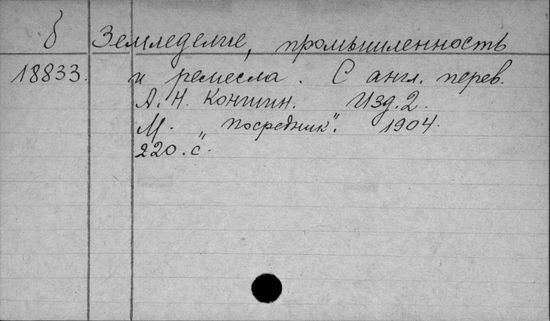 б Земледелие, промышленность
18833. и ремесла. С англ. перев.
А. Н. Коншин. Изд. 2.
М. „Посредник". 1904.
220. с.